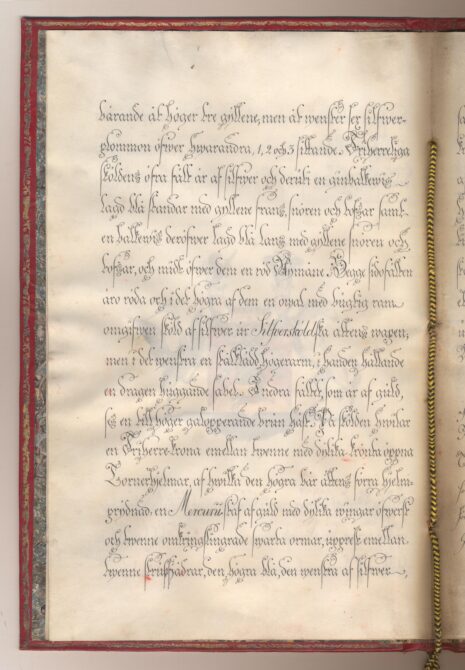 bärande åt höger tre gyllene, men åt wenster sex silfwer-
plommon öfwer hwarandra, 1, 2 och 3 sittande. Friherreliga
sköldens öfra fält är af silfwer och deruti en ginbalkewis
lagd blå standar med gyllene frans, snören och tofsar samt
en balkewis deröfwer lagd blå lans med gyllene snören och
tofsar, och midt öfwer dem en röd Romare. Begge sidofälten
äro röda och i det högra af dem en owal med bugtig ram
omgifwen sköld af silfwer är Silfverskölds'ka ättens wapen;
men i det wenstra en stålklädd högerarm, i handen hållande
en dragen huggande sabel. I nedra fältet, som är af guld,
ses en till höger galopperande brun häst. På skölden hwilar
en Friherre-krona emellan twenne med dylika krönta öppna
Tornerhjelmar, af hwilka den högra bär ättens förra hjelm-
prydnad: en Mercurii staf af guld med dylika wingar öfwerst
och twenne omkringslingrade swarta ormar, upprest emellan
twenne strutsfjädrar, den högra blå, den wenstra af silfwer,